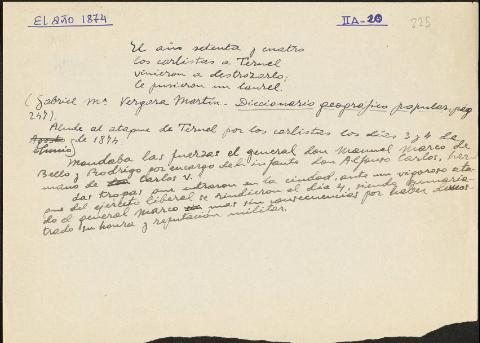 EL AÑO 1874
IIA-20
225
El año setenta y cuatro
los carlistas a Teruel
vinieron a destrozarlo;
le pusieron un laurel.
(Gabriel Mª Vergara Martín.- Diccionario geográfico popular, pág
247).
Alude al ataque de Teruel por los carlistas los días 3 y 4 de
Agosto de 1874
(Junio)
Mandaba las fuerzas el general don Manuel Marco de
Bello y Rodrigo por encargo del infante don Alfonso Carlos, her
mano de Carlos V.
Las tropas que entraron en la ciudad, ante un vigoroso ata
que del ejército liberal se rindieron el día 4, siendo sumaria
do el general Marco mas sin consecuencias por haber demos
trado su honra y reputación militar.